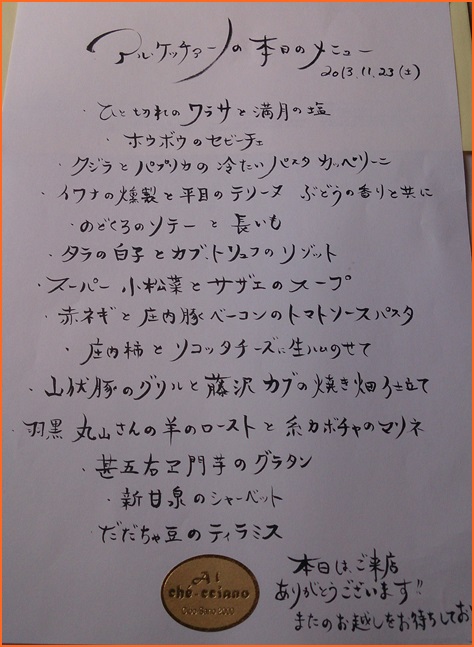 アル・ケッチァーノの本日のメニュー
2013.11.23(土)
・ひと切れのワラサと満月の塩
・ホウボウのセビーチェ
・クジラとパプリカの冷たいパスタ カッペリーニ
・イワナの燻製と平目のテリーヌ ぶどうの香りと共に
・のどぐろのソテーと長いも
・タラの白子とカブ、トリュフのリゾット
・スーパー小松菜とサザエのスープ
・赤ネギと庄内豚ベーコンのトマトソースパスタ
・庄内柿とリコッタチーズに生ハムのせて
・山伏豚のグリルと藤沢カブの焼き畑仕立て
・羽黒 丸山さんの羊のローストと糸カボチャのマリネ
・甚五右ヱ門芋のグラタン
・新甘泉のシャーベット
・だだちゃ豆のティラミス
Al
ché-cciano
本日は、ご来店
ありがとうございます!!
またのお越しをお待ちしてお